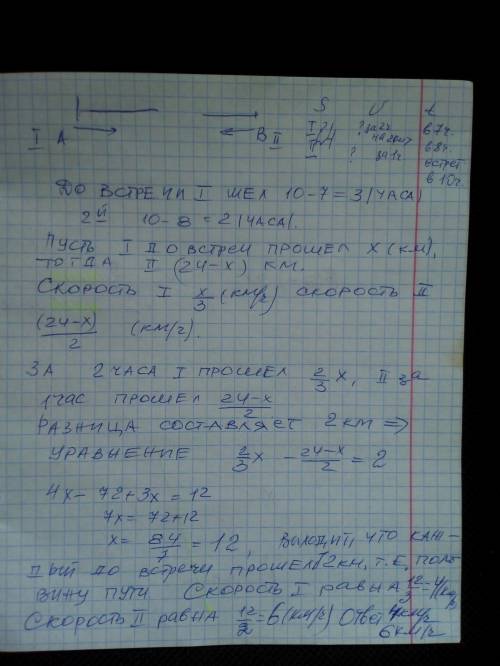 S V t
I A B II I 24 ? за 2ч. в 7ч.
II ? за 1ч. в 8ч.
встреч
в 10ч.
До встречи I шел 10-7=3(часа)
2й 10-8=2(часа).
Пусть I до встреч прошел x(км),
тогда II (24-x) км.
Скорость I x/3 (км/ч) скорость II
(24-x)/2 (км/ч).
За 2 часа I прошел 2/3 x, II за
1час прошел (24-x)/2
Разница составляет 2 км =>
уравнение 2/3x - (24-x)/2 = 2
4x- 72+3x = 12
7x= 72+12
x= 84/7 = 12, выходит, что каж-
дый до встречи прошел 12км, т.е. поло
вину пути Скорость I равна 12/3=4(км/ч)
Скорость II равна 12/2=6(км/ч) Ответ 4км/ч
6км/ч